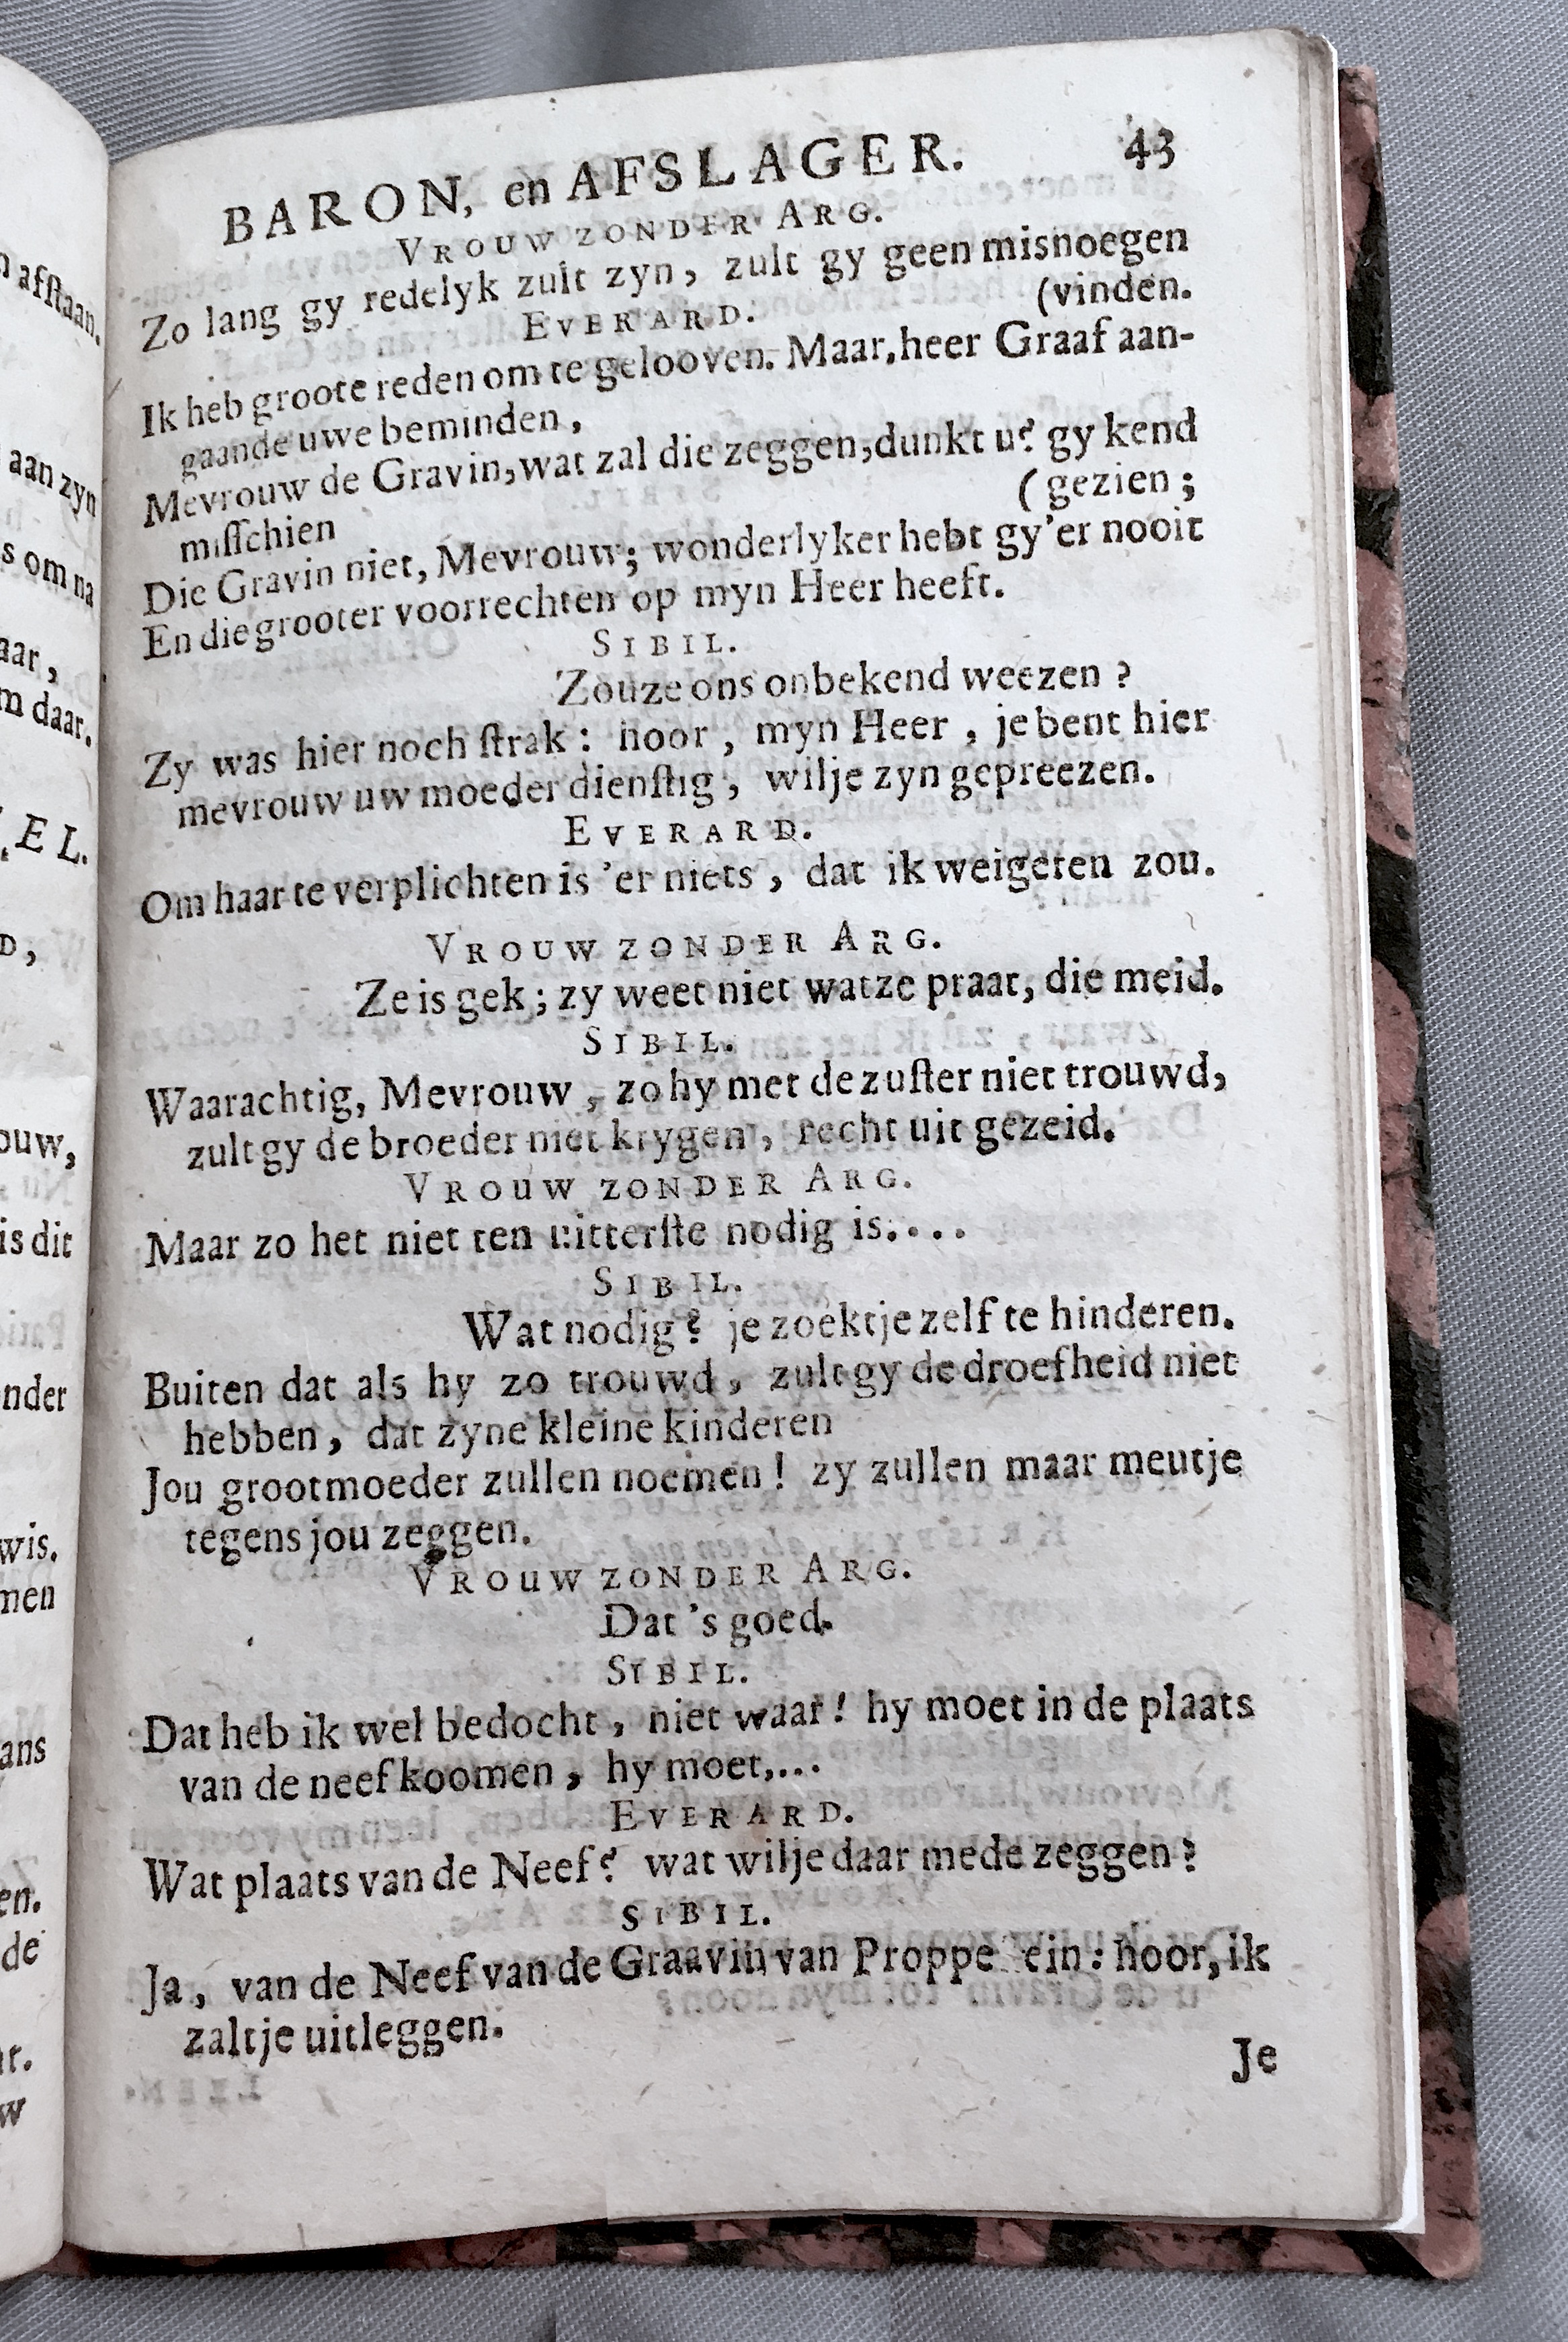 BARON, en AFSLAGER. 43
VROUW ZONDER ARG.
Zo lang gy redelyk zult zyn, zult gy geen misnoegen
(vinden.
EVERARD.
Ik heb groote reden om te gelooven. Maar, heer Graaf aan-
gaande uwe beminden,
Mevrouw de Gravin, wat zal die zeggen, dunkt u? gy kend
misschien
(gezien;
Die Gravin niet, Mevrouw; wonderlyker hebt gy'er nooit
En die grooter voorrechten op myn Heer heeft.
SIBIL.
Zouze ons onbekend weezen?
Zy was hier noch strak: hoor, myn Heer, je bent hier
mevrouw uw moeder dienstig, wilje zyn gepreezen.
EVERARD.
Om haar te verplichten is 'er niets, dat ik weigeren zou.
VROUW ZONDER ARG.
Ze is gek; zy weet niet watze praat, die meid.
SIBIL.
Waarachtig, Mevrouw, zo hy met de zuster niet trouwd,
zult gy de broeder niet krygen, recht uit gezeid.
VROUW ZONDER ARG.
Maar zo het niet ten uitterste nodig is....
SIBIL.
Wat nodig? je zoektje zelf te hinderen.
Buiten dat als hy zo trouwd, zult gy de droefheid niet
hebben, dat zyne kleine kinderen
Jou grootmoeder zullen noemen! zy zullen maar meutje
tegens jou zeggen.
VROUW ZONDER ARG.
Dat 's goed.
SIBIL.
Dat heb ik wel bedocht, niet waar! hy moet in de plaats
van de neef koomen, hy moet....
EVERARD.
Wat plaats van de Neef? wat wilje daar mede zeggen?
SIBIL.
Ja, van de Neef van de Graavin van Proppe ein: hoor, ik
zaltje uitleggen.
Je